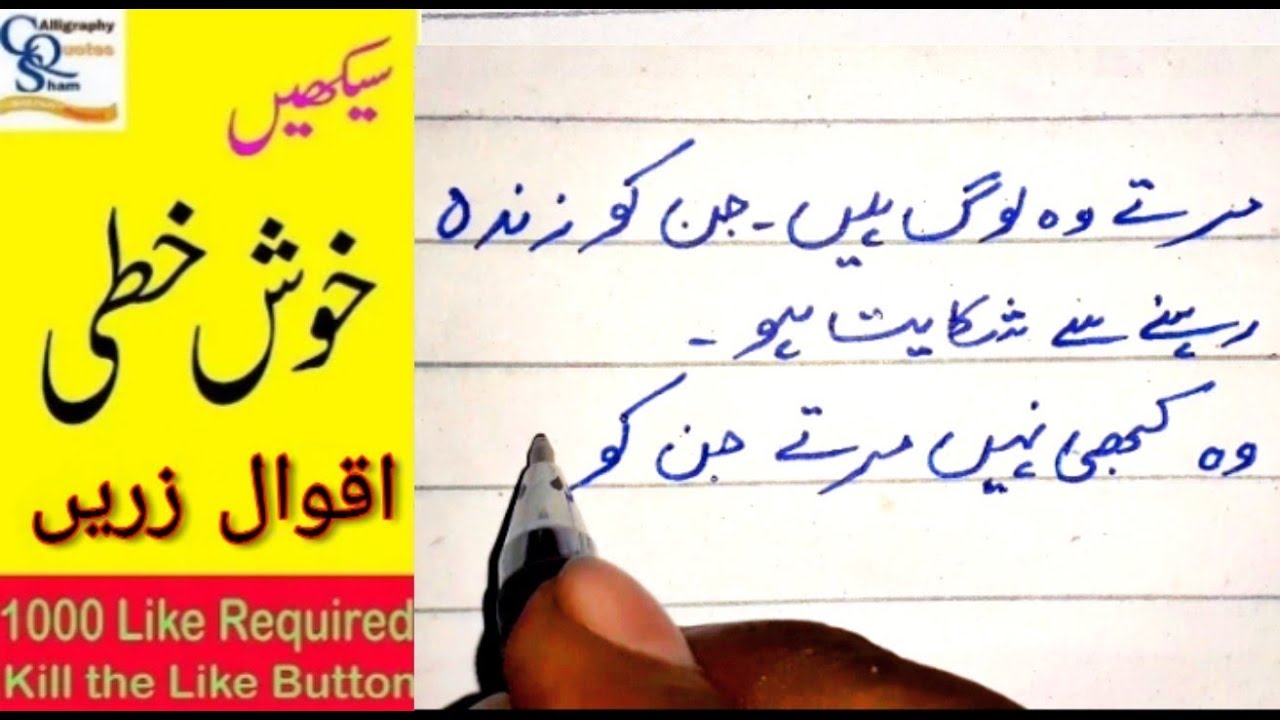 Calligraphy
Quotes
Sham
سیکھیں
خوش خطی
اقوال زریں
1000 Like Required
Kill the Like Button
مرتے وہ لوگ ہیں۔ جن کو زندہ
رہنے سے شکایت ہو۔
وہ کبھی نہیں مرتے جن کو